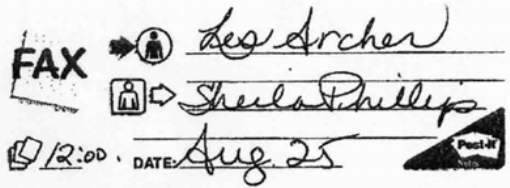 FAX Leo Archer
Sheila Phillips
12:00. DATE: Aug. 25 Post-it
Notes